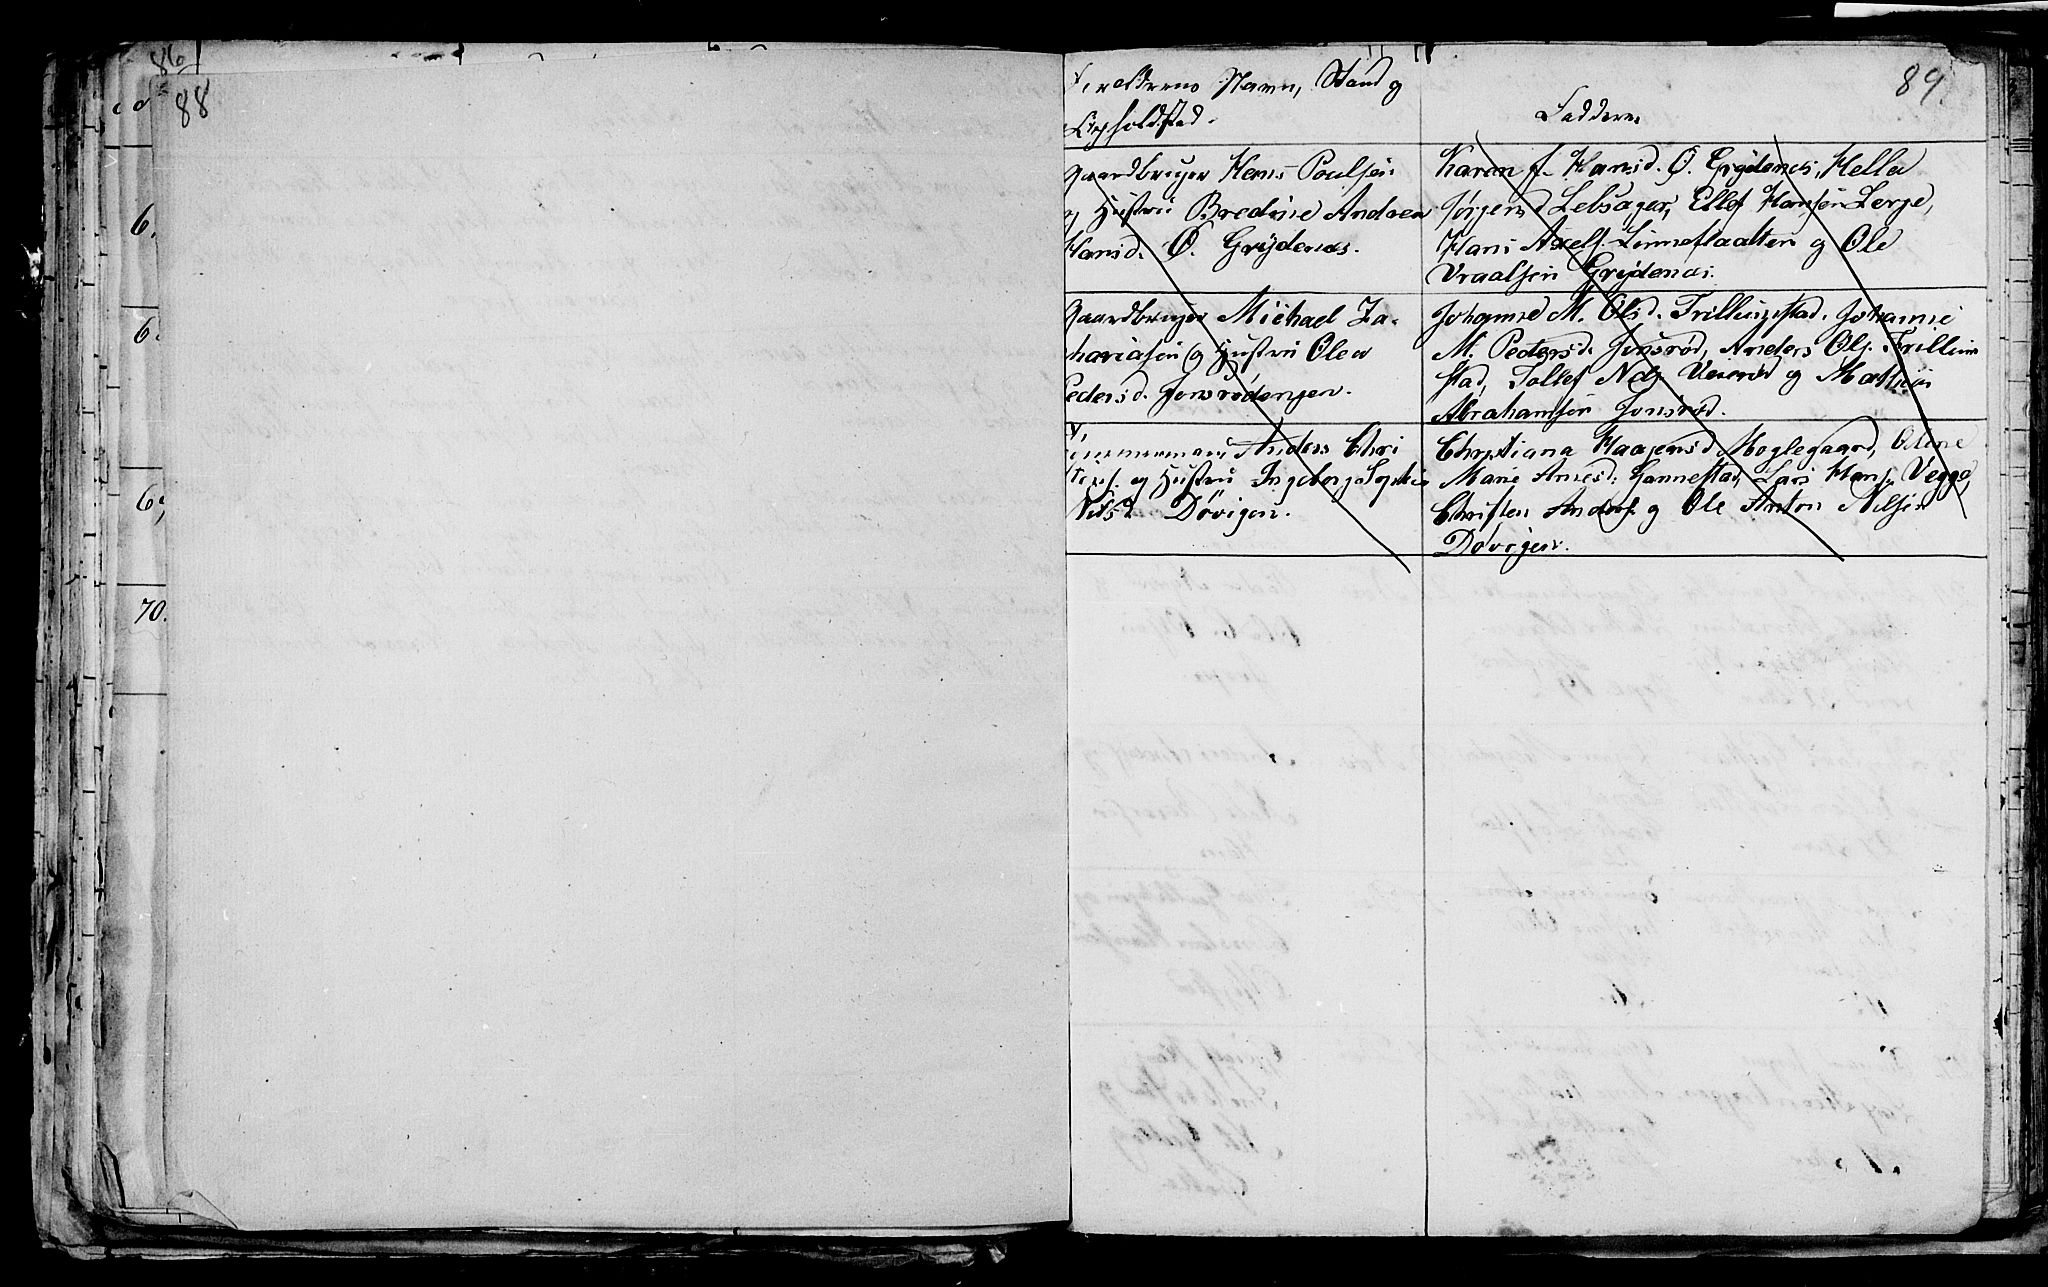 86
88
6.
6.
69
70.
89.
Forældrenes Navn, Stand og
Opholdsted.
Faddere
Gaardbruger Hans Poulsen
og Hustru Bredine Andrea
Hansd. Ø. Grydenæs.
Karen J. Hansd. Ø. Grydenæs, Helle
Jørgensd Lebsager, Ellef Hansen Lerpe,
Hans Axels. Linneflaatten og Ole
Vraalsen Grydenæs.
Gaardbruger Michael Za-
chariasen og Hustru Olea
Pedersd. Jonsrødengen.
Johanne M. Olsd. Trillingstad, Johanne
M. Pedersd. Jonsrød, Anders Ols. Trilling
stad, Tollef og Mathias
Abrahamsen Jonsrød.
Tømmermand Anders Chri
stens. og Hustru Ingeborg Sophie
Nilsd Døvigen.
Christiana Haagensd Moglegaard, Oline
Marie Amesd. Gannestad, Lars Hans. Vegge,
Christen Anders. og Ole Anton Nilsen
Døvigen.